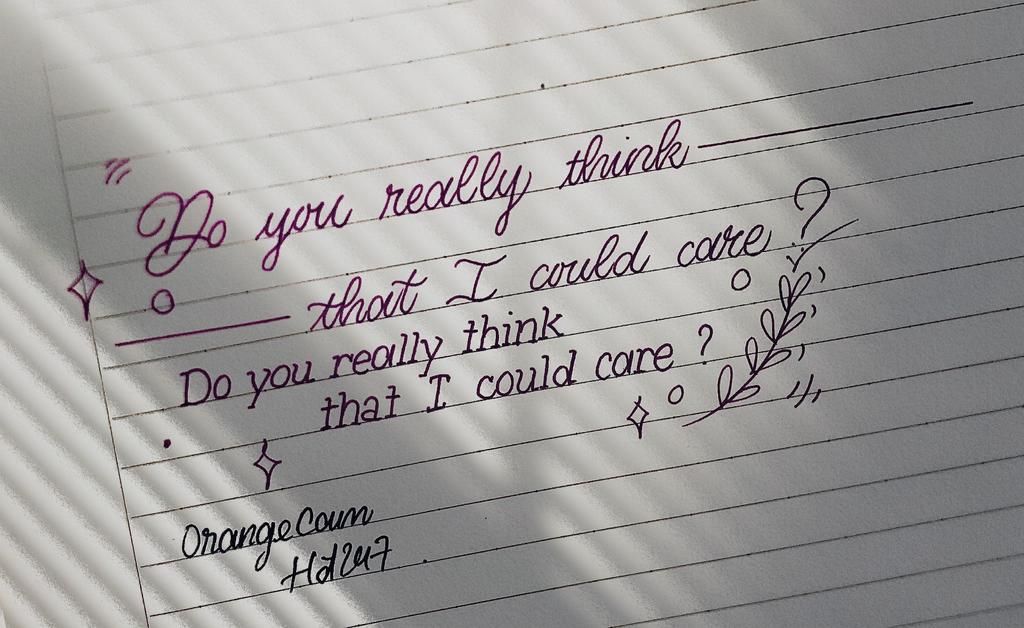 " Do you really think
that I could care ?
Do you really think
that I could care ?
OrangeCoum
Hd247